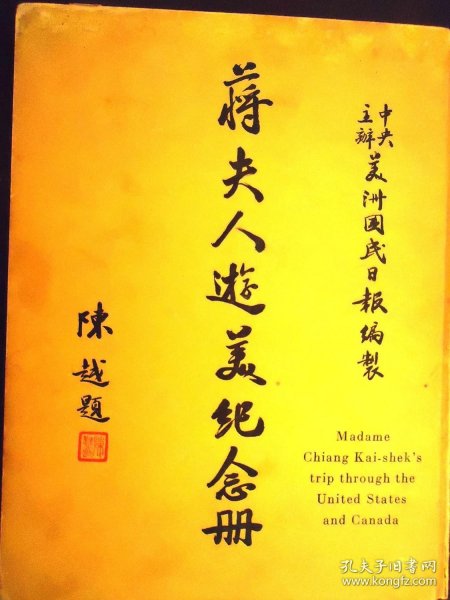 中央
主辦
美洲國民日報編製
蔣夫人遊美紀念册
陳越題
Madame
Chiang Kai-shek's
trip through the
United States
and Canada
孔夫子旧书网
www.kongfz.com